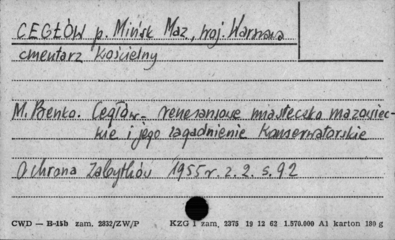 CEGŁÓW p. Mińsk Maz., woj. Warszawa
cmentarz kościelny
M. Benko. Cegłów - renesansowe miasteczko mazowiec-
kie i jego zagadnienie konserwatorskie
Ochrona Zabytków 1955 r. z. 2. s. 92
CWD — B-15b zam. 2832/ZW/P KZG 1 zam. 2375 19 12 62 1.570.000 A1 karton 180 g